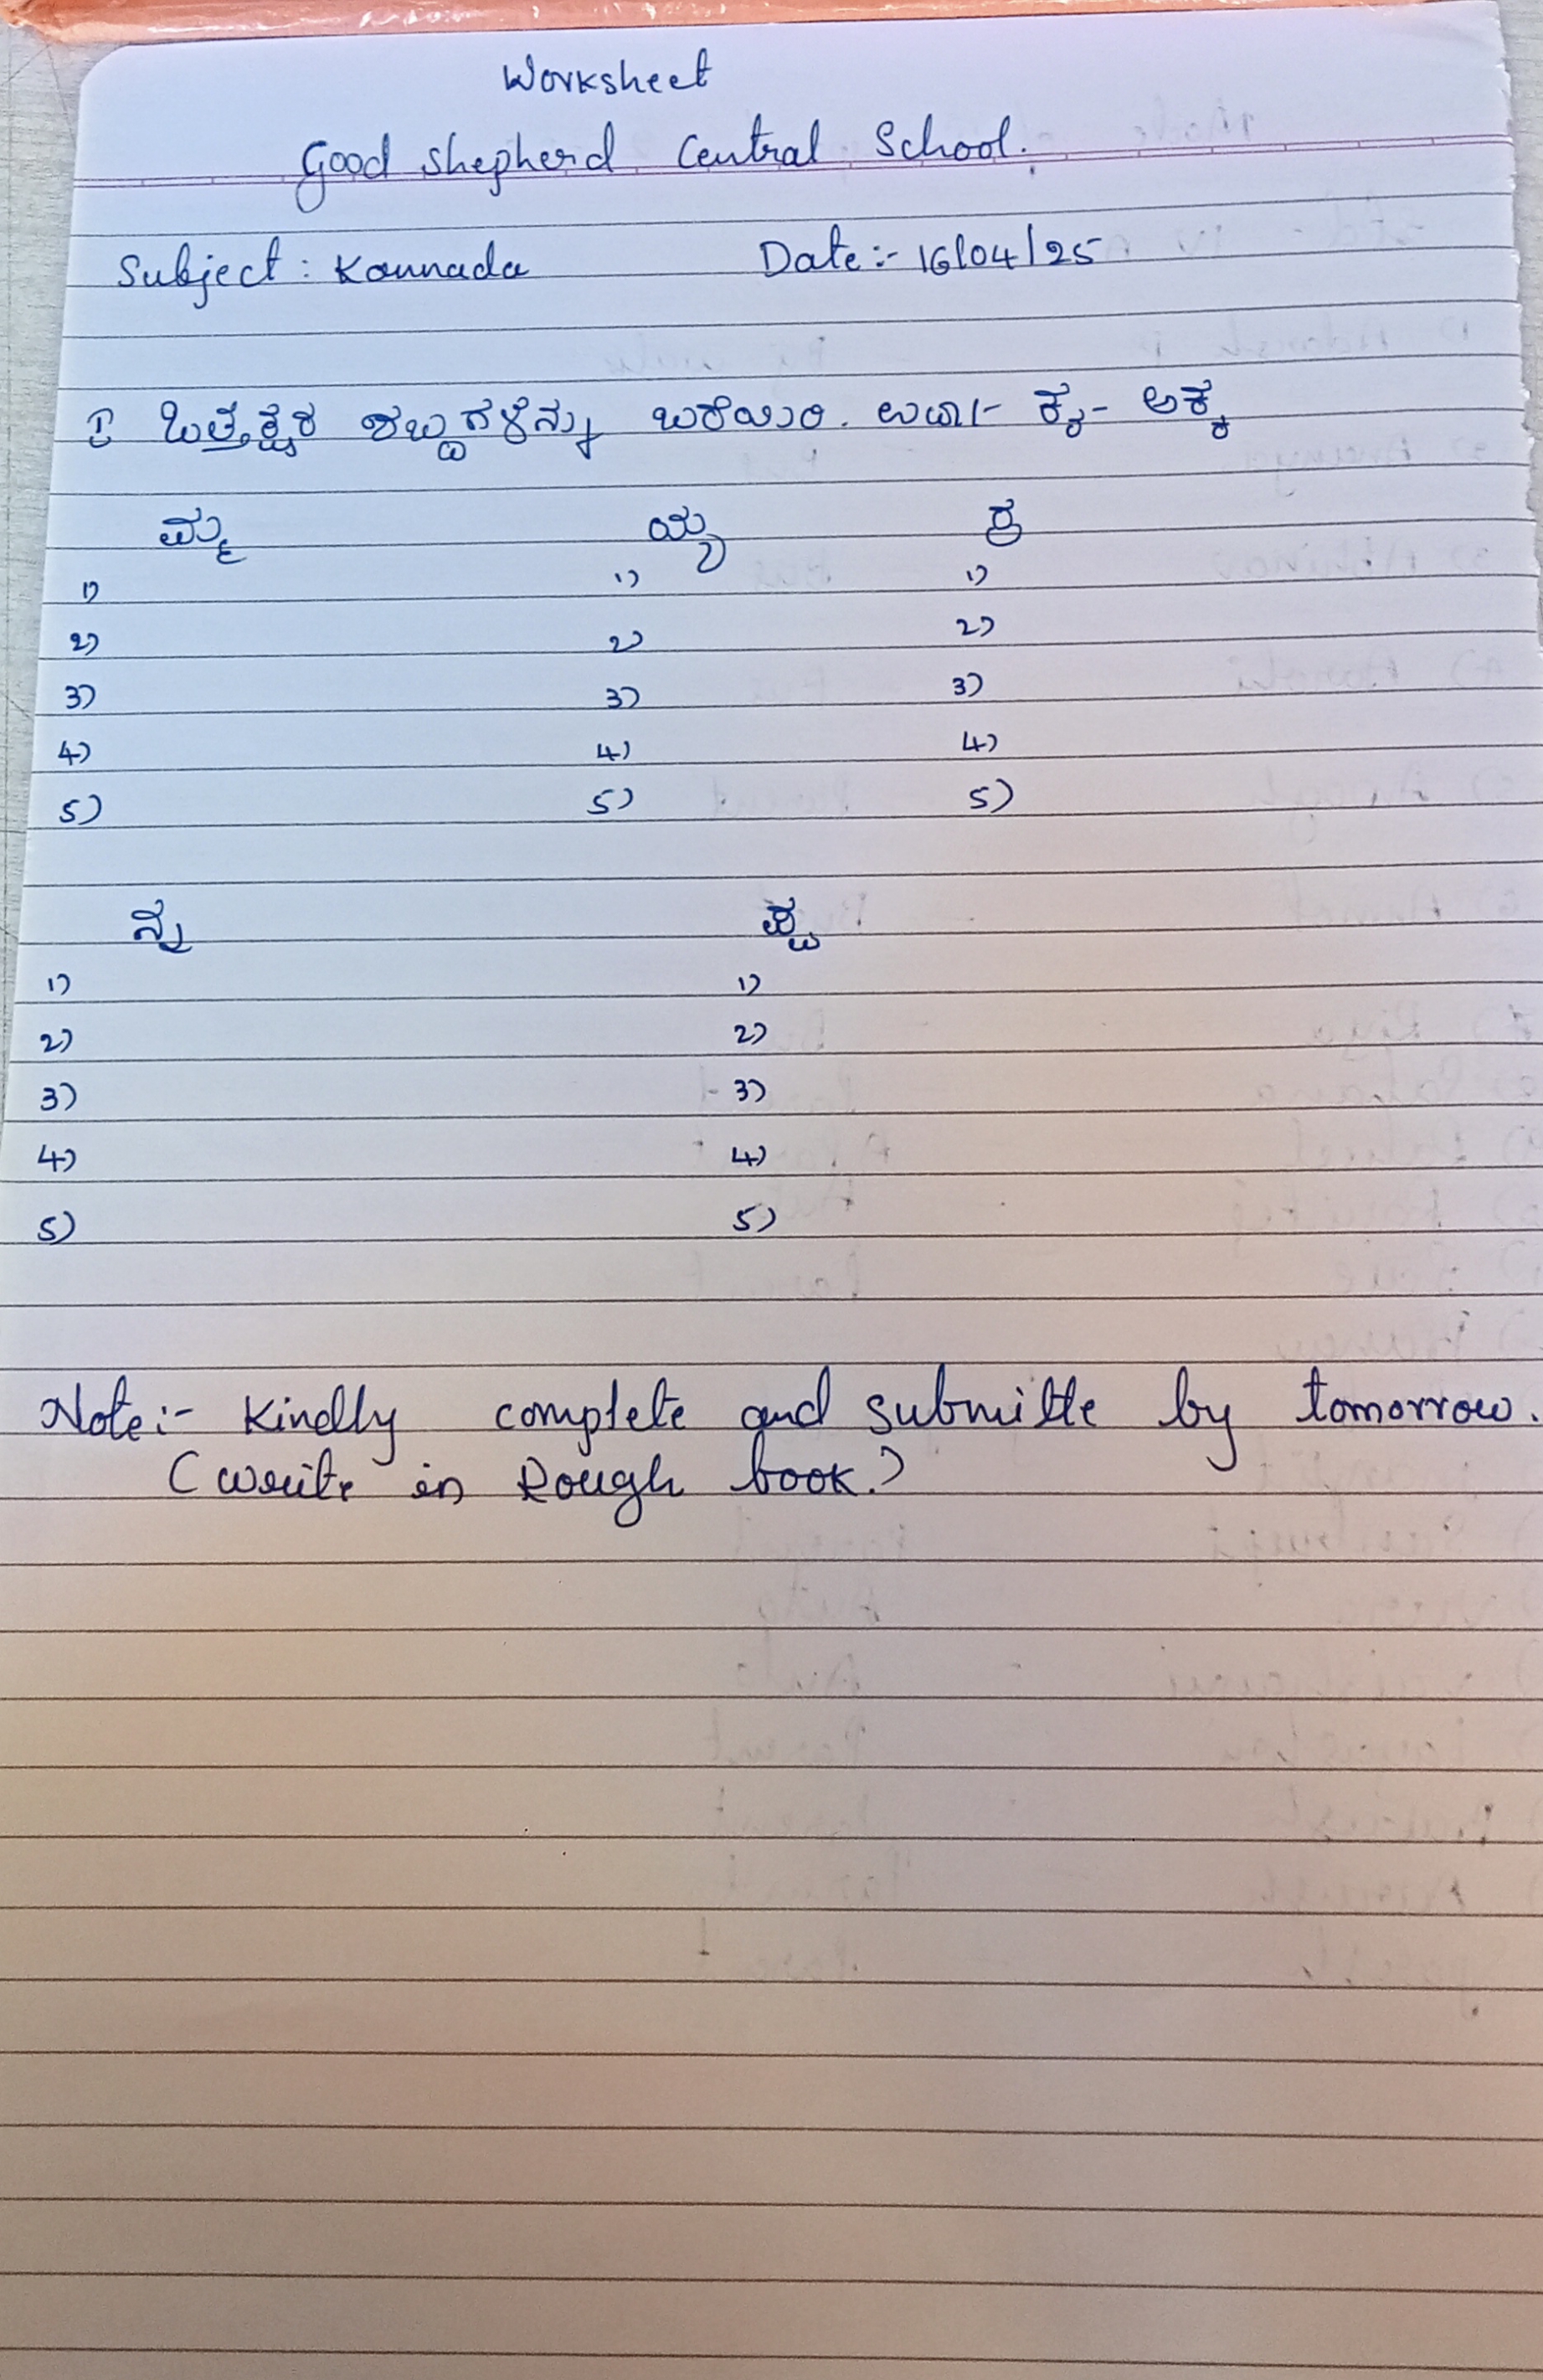 Worksheet
Good Shepherd Central School.
Subject : Kannada Date :- 16/04/25
I ಒತ್ತಕ್ಷರ ಶಬ್ದಗಳನ್ನು ಬರೆಯಿರಿ. ಉದಾ:- ಕ್ಕ - ಅಕ್ಕ
ಮ್ಮ ಯ್ಯ ಕ್ರ
1) 1) 1)
2) 2) 2)
3) 3) 3)
4) 4) 4)
5) 5) 5)
ನ್ನ ಪ್ಪ
1) 1)
2) 2)
3) 3)
4) 4)
5) 5)
Note :- Kindly complete and submitte by tomorrow.
(write in Rough book.)